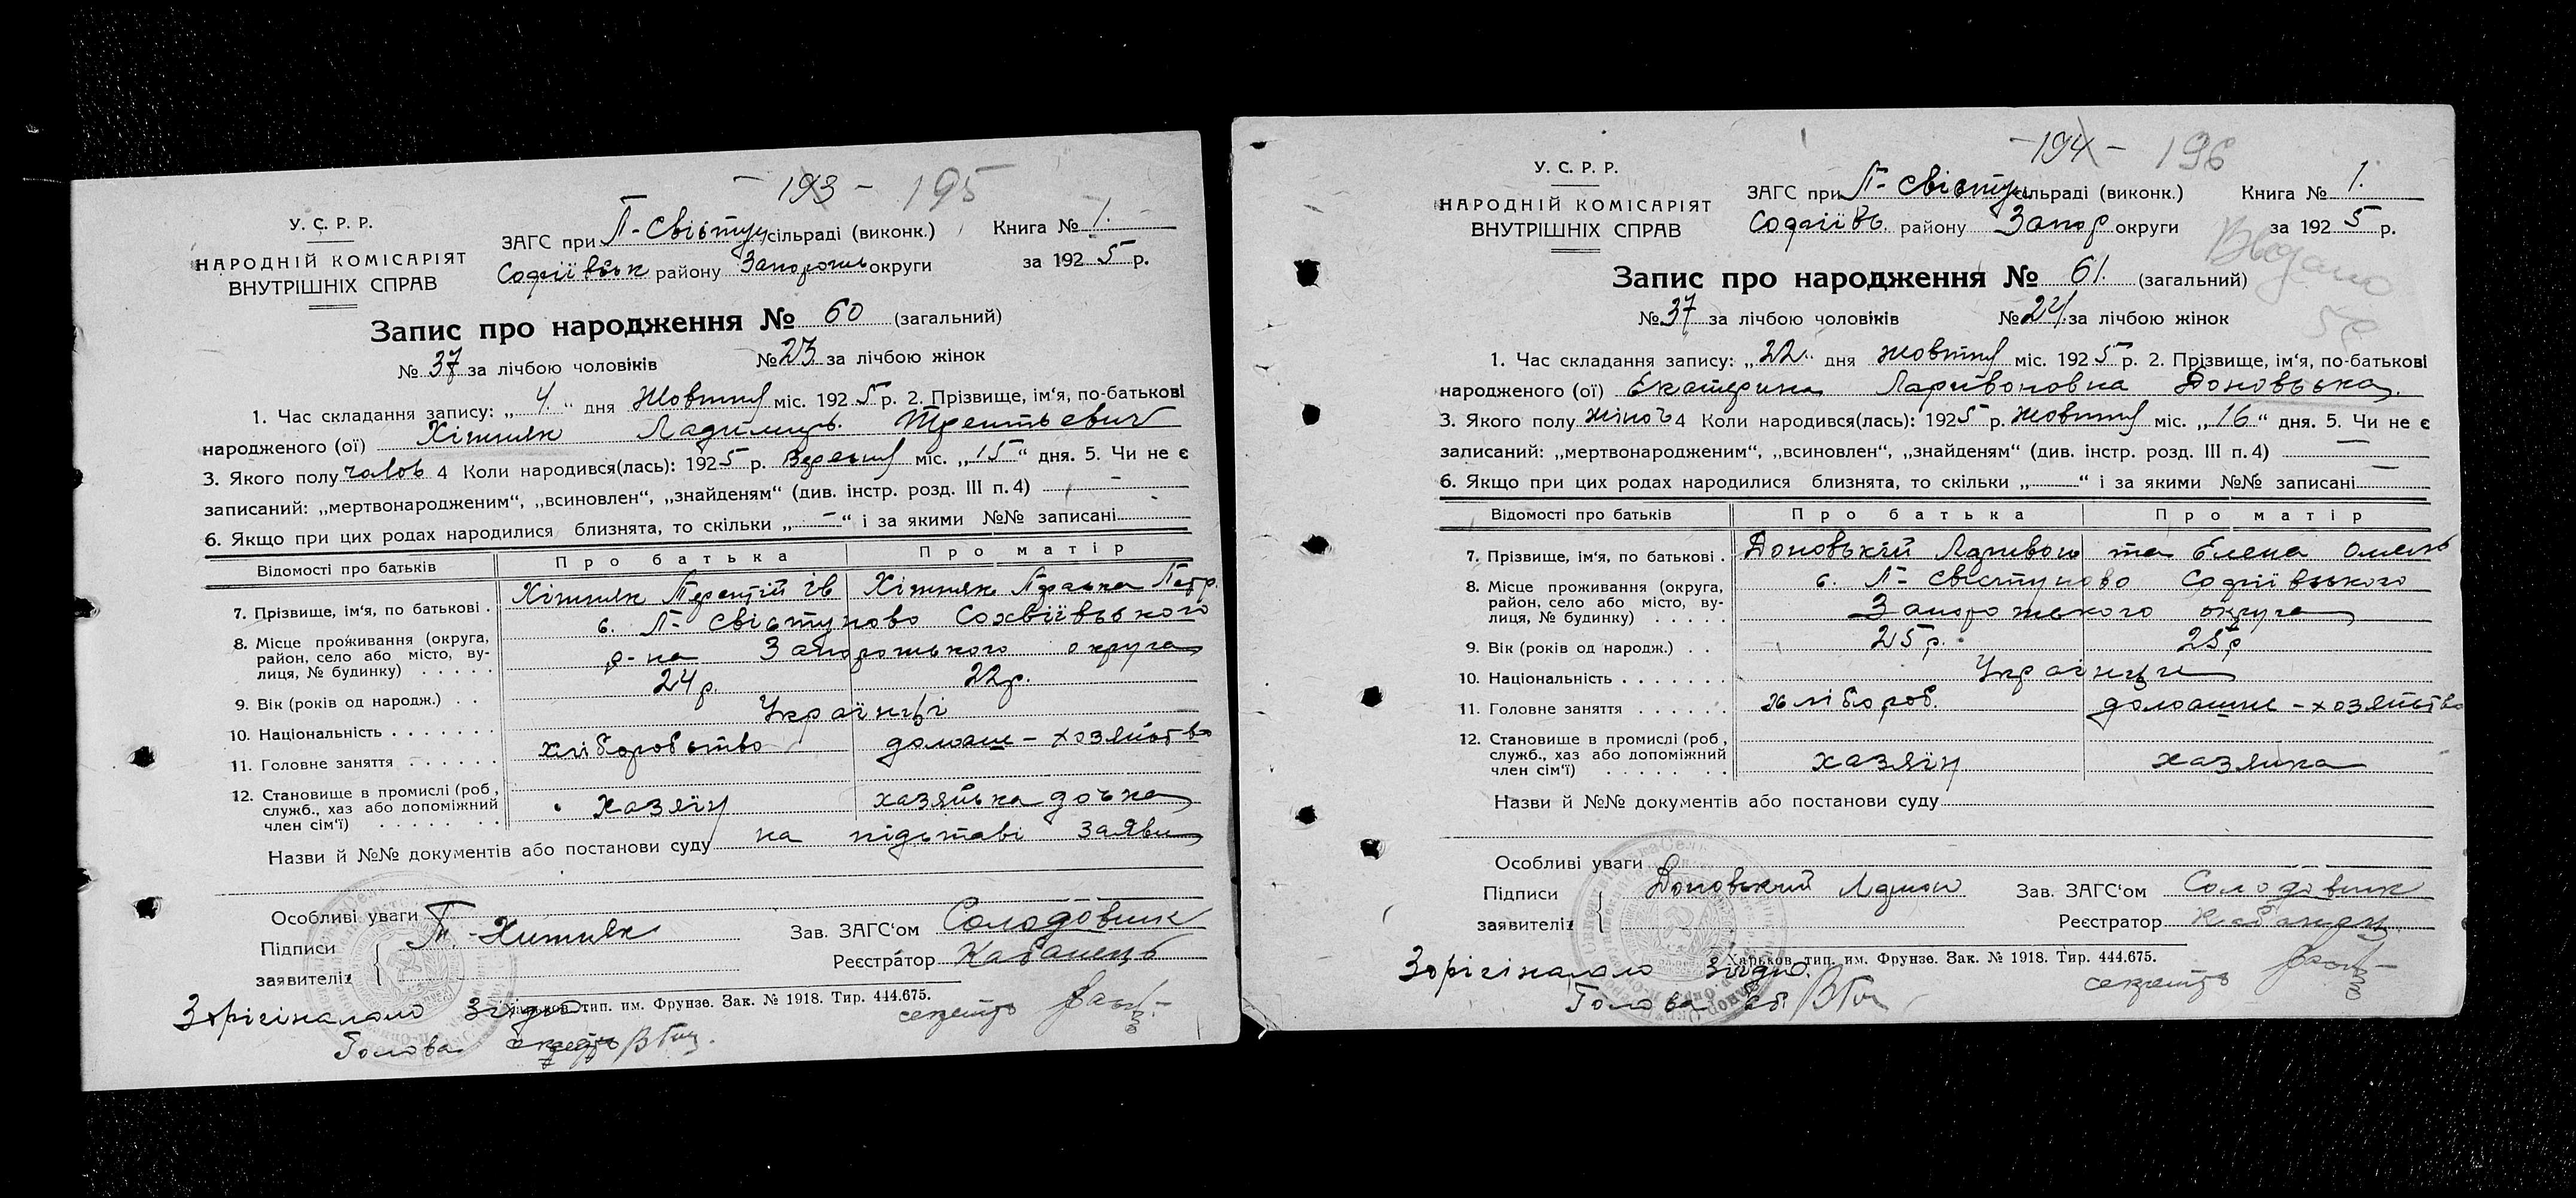 - 193 - 195
У. С. Р. Р.
НАРОДНІЙ КОМІСАРІЯТ
ВНУТРІШНІХ СПРАВ
ЗАГС при П-Свісту сільраді (виконк.) Книга № 1.
Софіївськ району Запорожь округи за 1925 р.
Запис про народження № 60 (загальний)
№ 37 за лічбою чоловіків № 23 за лічбою жінок
1. Час складання запису: „ 4. “ дня Жовтня міс. 1925 р. 2. Прізвище, ім‘я, по-батькові
народженого (ої) Хіжняк
3. Якого полу чолов 4 Коли народився(лась): 1925 р. Вересня міс. „15“ дня. 5. Чи не є
записаний: „мертвонародженим“, „всиновлен“, „знайденям“ (див. інстр. розд. III п. 4) —
6. Якщо при цих родах народилися близнята, то скільки „—“ і за якими №№ записані
Відомості про батьків Про батька Про матір
7. Прізвище, ім‘я, по батькові . Хіжняк Терентій Ів Хіжняк Петр.
8. Місце проживання (округа, район, село або місто, вулиця, № будинку) . . . . . с. П- Свістуново Сохвіївського
р-на Запорожького округа
9. Вік (років од народж.) . . 24 р. 22 р.
10. Національність . . . . . . . Українці
11. Головне заняття . . . . . . хліборобство домашне - хозяйство
12. Становище в промислі (роб., служб., хаз або допоміжний член сім‘ї) . . . . . . . . хазяїн хазяйька дочка
Назви й №№ документів або постанови суду на підставі заяви
Особливі уваги
Підписи
заявителів Т. Хижняк
Зав. ЗАГС‘ом Солодовник
Реєстратор Кабанець
Харьков, тип. им. Фрунзе. Зак. № 1918. Тир. 444.675.
З оріґіналом згідно.
Голова
секреть
- 194 - 196
У. С. Р. Р.
НАРОДНІЙ КОМІСАРІЯТ
ВНУТРІШНІХ СПРАВ
ЗАГС при П- Свістун сільраді (виконк.) Книга № 1.
Софіївь. району Запор округи за 1925 р.
Запис про народження № 61. (загальний)
№ 37 за лічбою чоловіків № 24 за лічбою жінок
1. Час складання запису: „22“ дня жовтня міс. 1925 р. 2. Прізвище, ім‘я, по-батькові
народженого (ої) Екатерина Ларивоновна Доновська.
3. Якого полу жіноч 4 Коли народився(лась): 1925 р. жовтня міс. „16“ дня. 5. Чи не є
записаний: „мертвонародженим“, „всиновлен“, „знайденям“ (див. інстр. розд. III п. 4) —
6. Якщо при цих родах народилися близнята, то скільки „—“ і за якими №№ записані —
Відомості про батьків Про батька Про матір
7. Прізвище, ім‘я, по батькові . Доновській Ларивон та Елена Омель
8. Місце проживання (округа, район, село або місто, вулиця, № будинку) . . . . . с. П- Свістуново Софіївського
Запорожького округа
9. Вік (років од народж.) . . 25 р. 25 р
10. Національність . . . . . . . Українци
11. Головне заняття . . . . . . хлібороб. домашне - хозяйство
12. Становище в промислі (роб., служб., хаз або допоміжний член сім‘ї) . . . . . . . хазяїн хазяйка
Назви й №№ документів або постанови суду
Особливі уваги
Підписи
заявителів Доновський
Зав. ЗАГС‘ом Солодовник
Реєстратор Кабанець
Харьков, тип. им. Фрунзе. Зак. № 1918. Тир. 444.675.
З оріґіналом згідно.
Голова
секреть